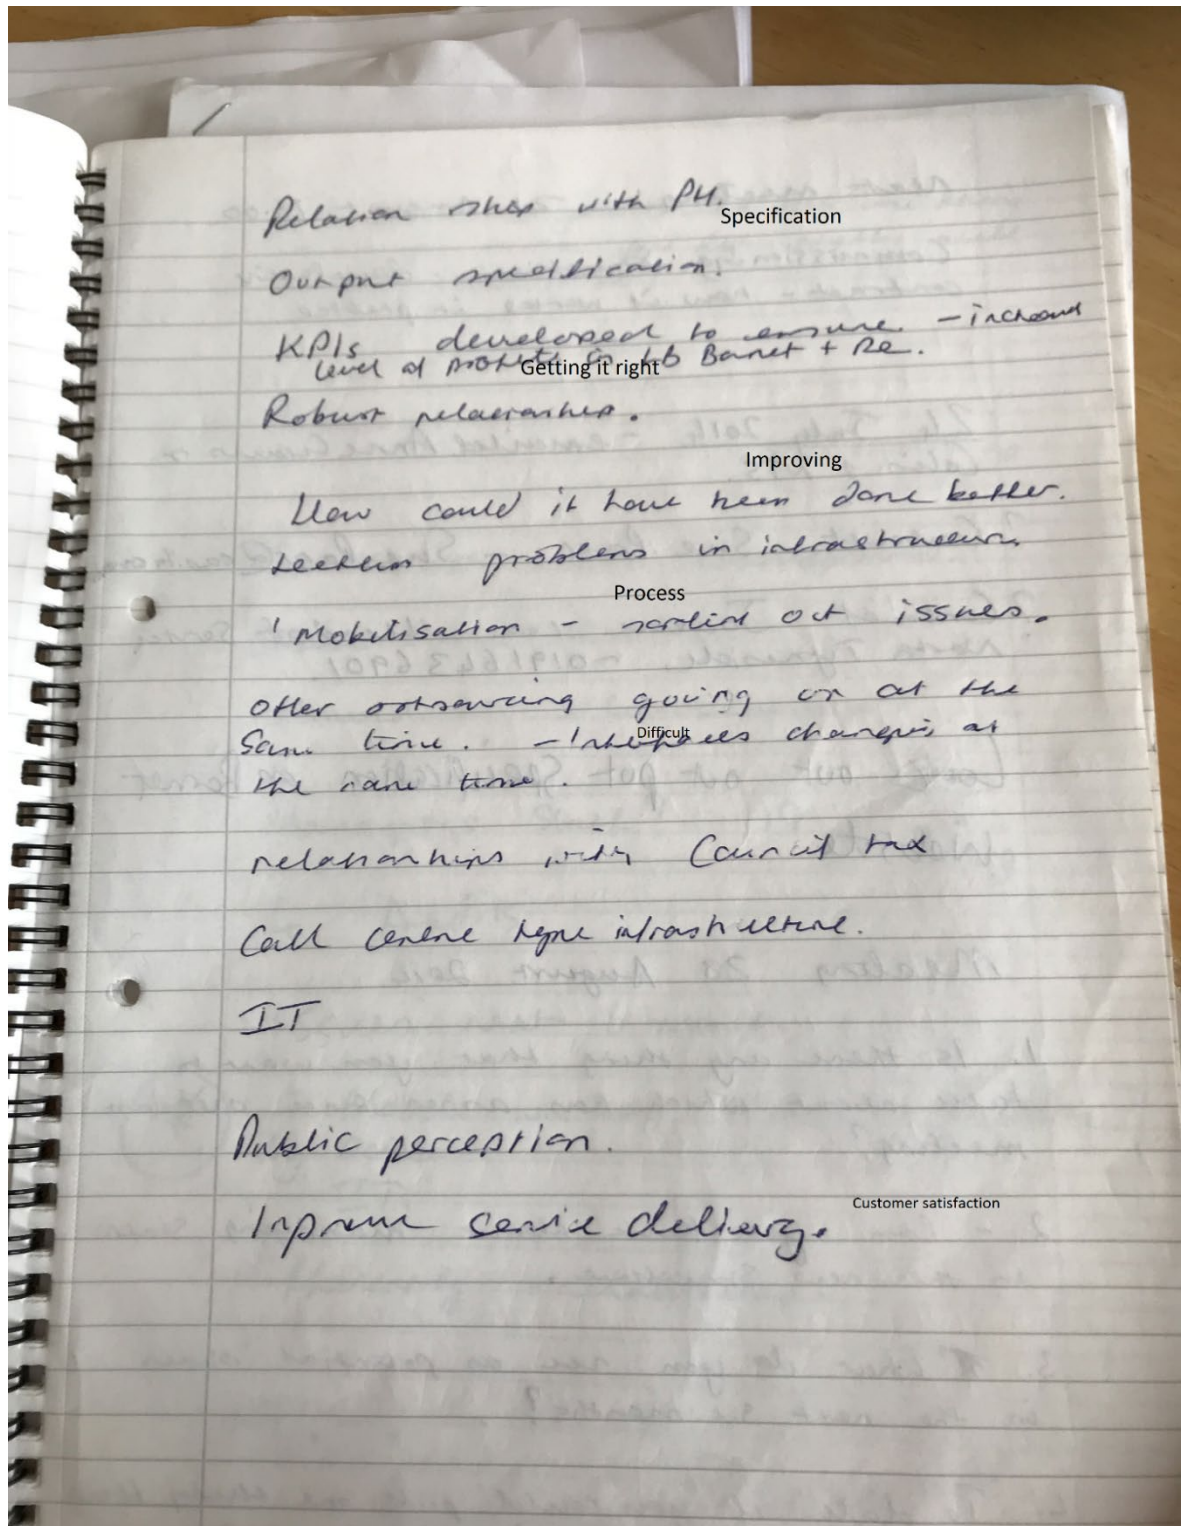 Relation ship with PH.
Specification
Output specification.
KPIs developed to ensure - increased
level of to LB Barnet + Re.
Getting it right
Robust relationship.
Improving
How could it have been done better.
teething problems in infrastructure
Process
'Mobilisation - sorting out issues.
Other outsourcing going on at the
Same time. - Interfaces changing at
Difficult
the same time.
relationships with Council tax
Call centre type infrastructure.
IT
Public perception.
Customer satisfaction
Improve service delivery.